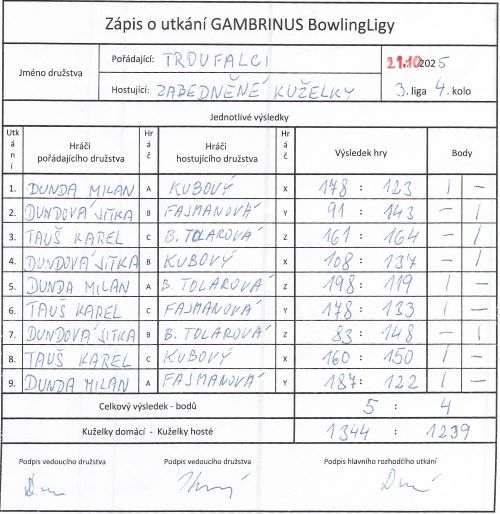 Zápis o utkání GAMBRINUS BowlingLigy
Jméno družstva
Pořádající: TROUFALCI
Hostující: ZABEDNĚNÉ KUŽELKY
29.10 2025
3. liga 4. kolo
Jednotlivé výsledky
Utkání Hráči pořádajícího družstva Hráč Hráči hostujícího družstva Hráč Výsledek hry Body
1. DUNDA MILAN A KUBOVÝ X 178 : 123 1 -
2. DUNDOVÁ JITKA B FAJMANOVÁ Y 91 : 143 - 1
3. TAUŠ KAREL C B. TOLAROVÁ Z 161 : 164 - 1
4. DUNDOVÁ JITKA B KUBOVÝ X 108 : 137 - 1
5. DUNDA MILAN A B. TOLAROVÁ Z 198 : 119 1 -
6. TAUŠ KAREL C FAJMANOVÁ Y 178 : 133 1 -
7. DUNDOVÁ JITKA B B. TOLAROVÁ Z 83 : 148 - 1
8. TAUŠ KAREL C KUBOVÝ X 160 : 150 1 -
9. DUNDA MILAN A FAJMANOVÁ Y 187 : 122 1 -
Celkový výsledek - bodů 5 : 4
Kuželky domácí - Kuželky hosté 1344 : 1239
Podpis vedoucího družstva Podpis vedoucího družstva Podpis hlavního rozhodčího utkání